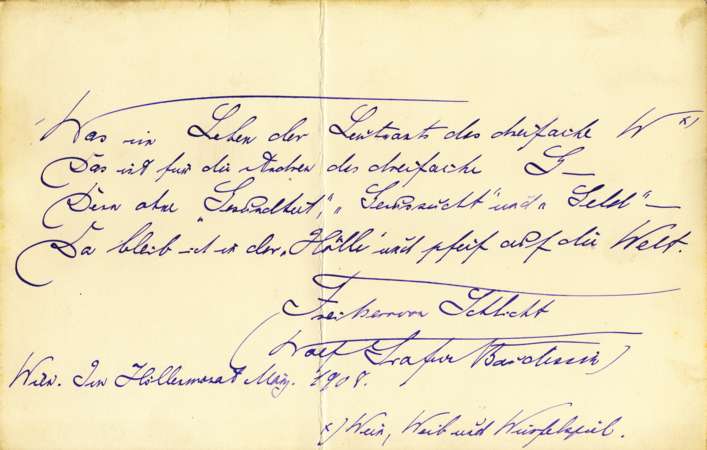 Was im Leben der Leutnants das dreifache W x)
Das ist für die Andren das dreifache G—
Denn ohne „Gesundheit", „Genusssucht" und „Geld"—
Da bleib ich in der „Hölle" und pfeif auf die Welt.
Freiherr von Schlicht
(Wolf Graf von Baudissin)
Wien. Im Höllenmonat März. 1908.
x) Wein, Weib und Würfelspiel.